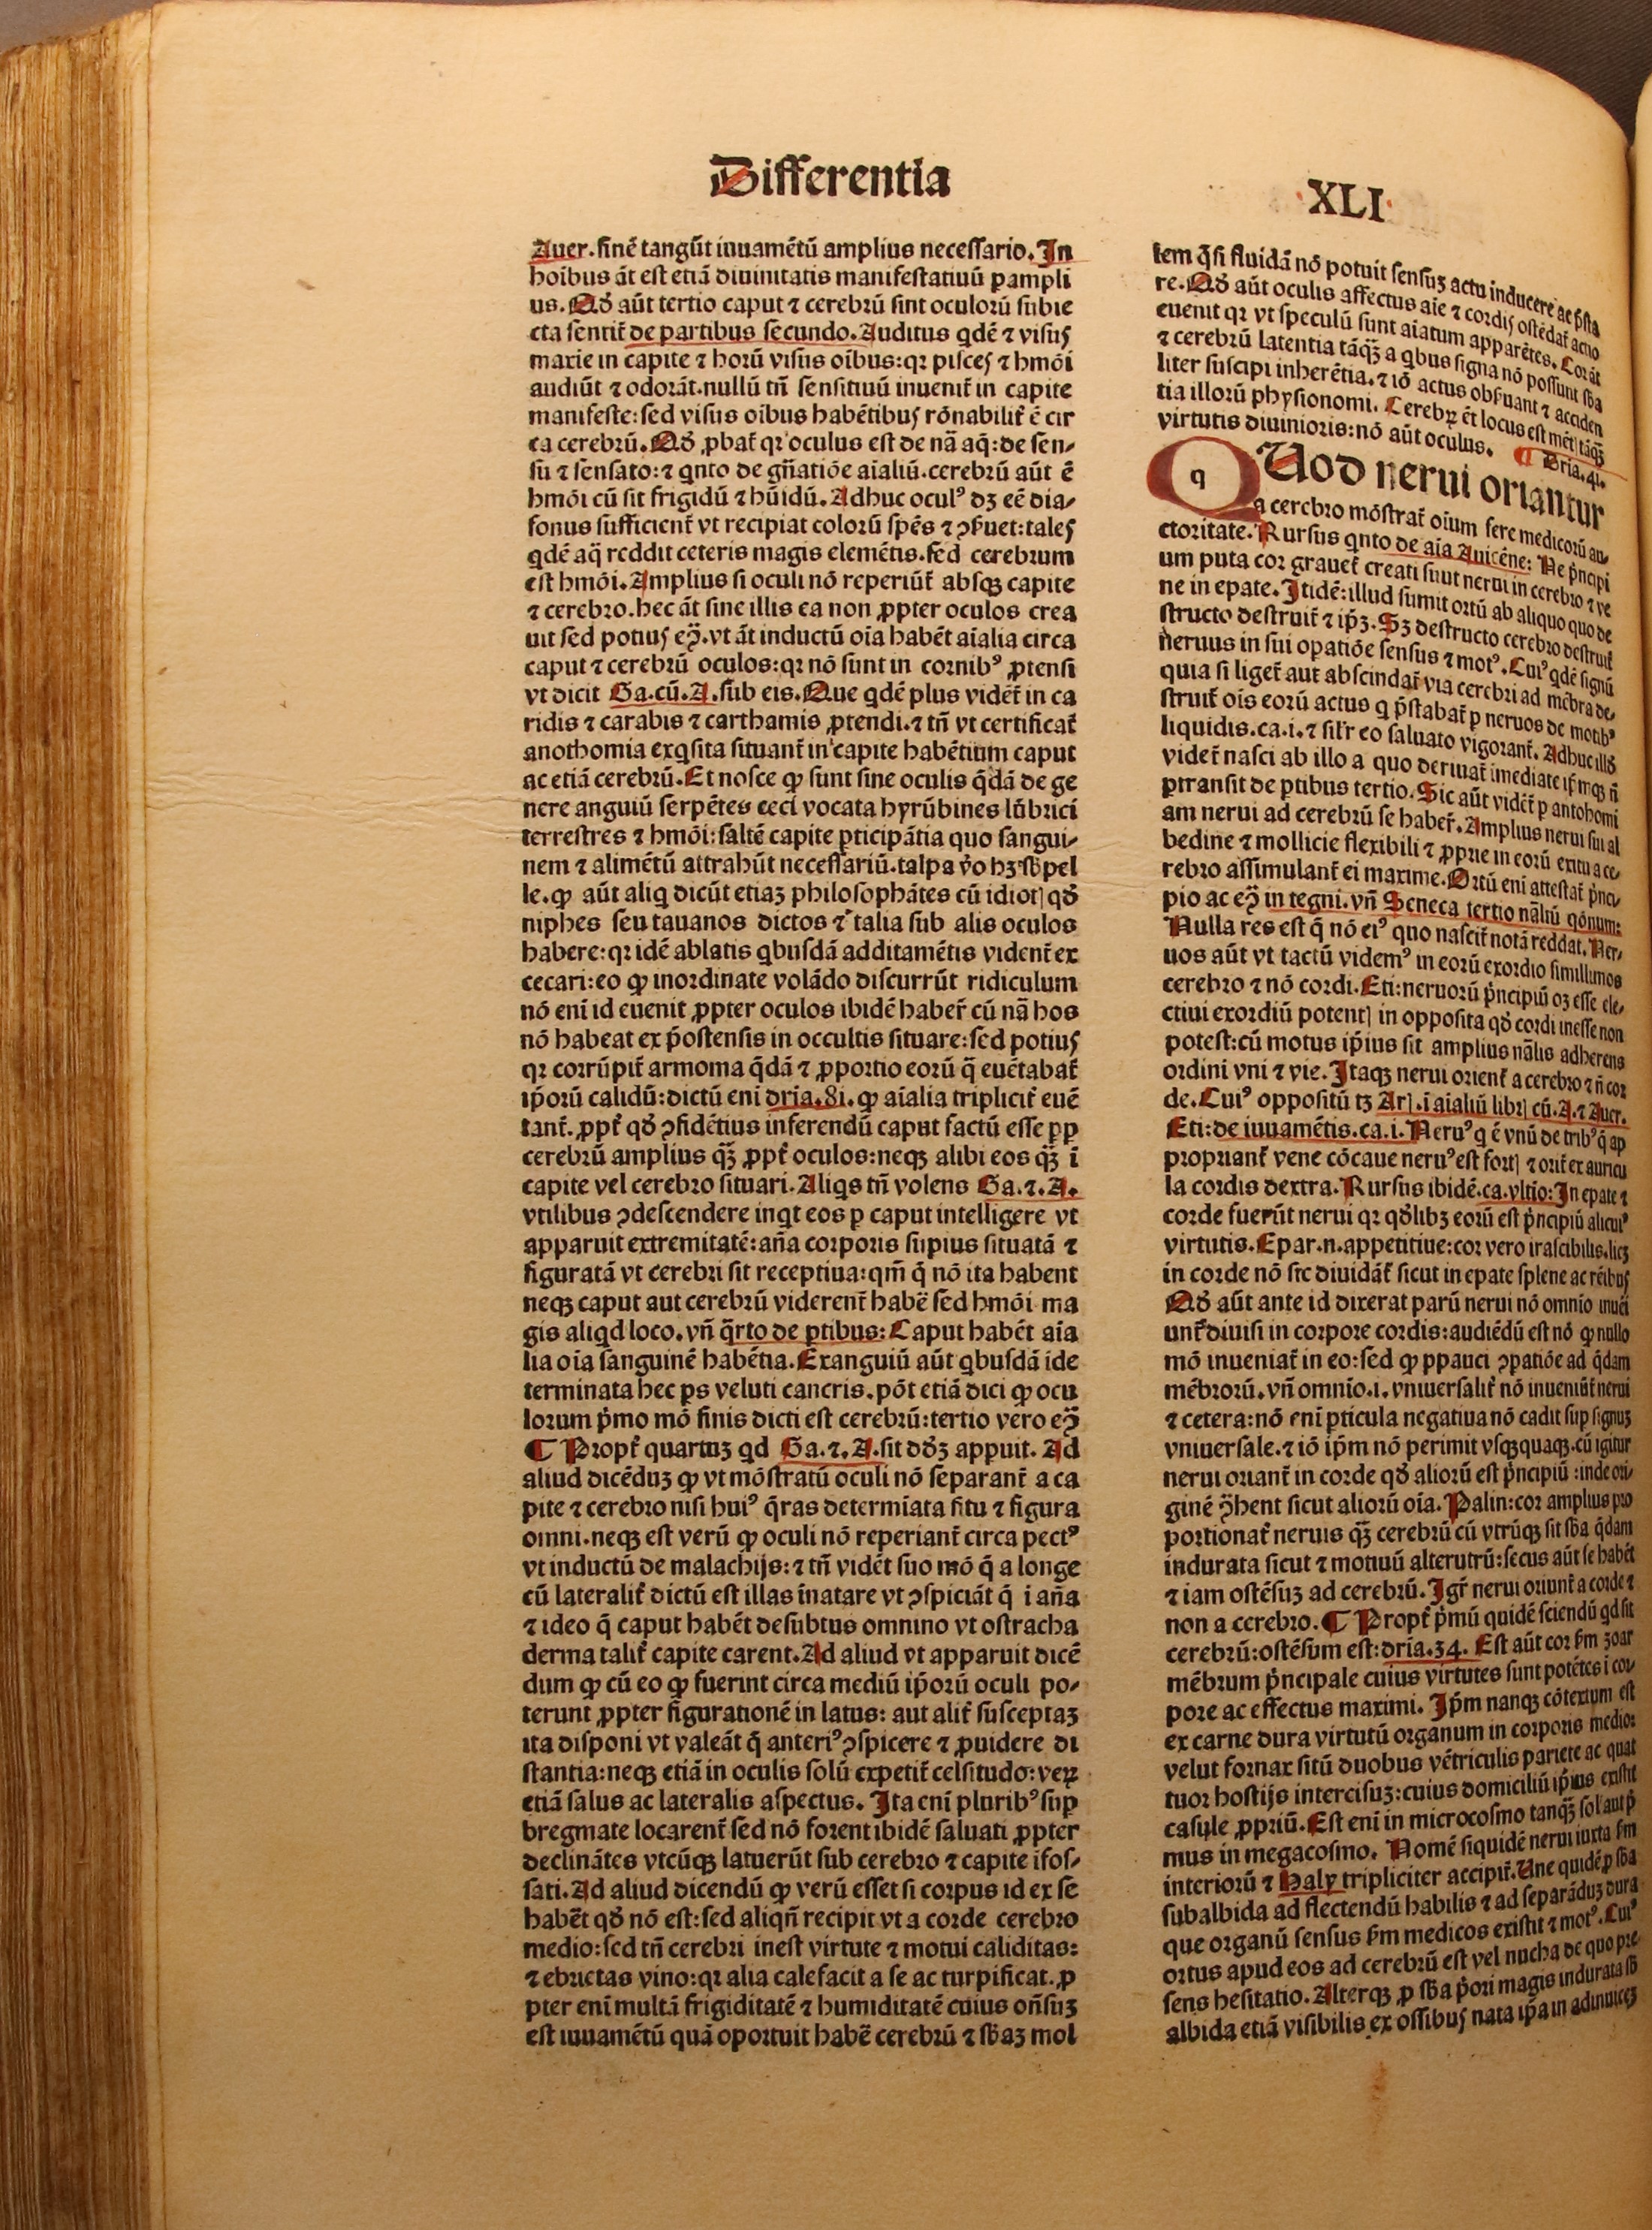 Differentia
XLI
Auer. sinē tangūt iuuamētū amplius necessario. In
hoībus āt est etiā diuinitatis manifestatiuū p ampli
us. Qđ aūt tertio caput ⁊ cerebrū sint oculorū subie
cta sentiť de partibus secundo. Auditus qdē ⁊ visus
marie in capite ⁊ horū visus oībus: qꝛ pisces ⁊ hmōi
audiūt ⁊ odorāt. nullū tñ sensitiuū inueniť in capite
manifeste: sed visus oībus habētibus rōnabiliť ē cir
ca cerebrū. Qđ ꝓbať qꝛ oculus est de nā aq̄: de sen-
su ⁊ sensato: ⁊ qnto de gñatiōe aialiū. cerebrū aūt ē
hmōi cū sit frigidū ⁊ hūidū. Adhuc oculꝰ dꝫ eē dia-
fonus sufficienť vt recipiat colorū spēs ⁊ ꝯseruet: tales
qdē aq̄ reddit ceteris magis elemētis. sed cerebrum
est hmōi. Amplius si oculi nō reperiūť absqꝫ capite
⁊ cerebro. hec āt sine illis ea non ꝓpter oculos crea
uit sed potius eꝯ̄. vt āt inductū oīa habēt aīalia circa
caput ⁊ cerebrū oculos: qꝛ nō sunt in cornibꝰ ꝓtensi
vt dicit Ga. cū. A. sub eis. Que qdē plus vidēť in ca
ridis ⁊ carabis ⁊ carthamis ꝓtendi. ⁊ tñ vt certificať
anothomia exqsita situanť in capite habētium caput
ac etiā cerebrū. Et nosce ꝙ sunt sine oculis q̄dā de ge
nere anguiū serpētes ceci vocata hyrūbines lūbrici
terrestres ⁊ hmōi: saltē capite pticipātia quo sangui-
nem ⁊ alimētū attrahūt necessariū. talpa v̊o hꝫ sb pel
le. ꝙ aūt aliq dicūt etiaꝫ philosophātes cū idiotꝭ qđ
niphes seu tauanos dictos ⁊ talia sub alis oculos
habere: qꝛ idē ablatis qbusdā additamētis videnť ex
cecari: eo ꝙ inordinate volādo discurrūt ridiculum
nō enī id euenit ꝓpter oculos ibidē haberi cū nā hos
nō habeat ex p̄ostensis in occultis situare: sed potius
qꝛ corrūpiť armoma q̄dā ⁊ ꝓportio eorū q̄ euētabať
ip̄orū calidū: dictū eni dria. 8i. ꝙ aīalia tripliciť euē
tanť. ꝓpť qđ ꝯfidētius inferendū caput factū esse pp
cerebrū amplius qꝫ̄ ꝓpť oculos: neqꝫ alibi eos qꝫ̄ ī
capite vel cerebro situari. Aliqs tñ volens Ga. ⁊. A.
vtilibus ꝯdescendere inqt eos p caput intelligere vt
apparuit extremitatē: aña corporis supius situatā ⁊
figuratā vt cerebri sit receptiua: qm̄ q̄ nō ita habent
neqꝫ caput aut cerebrū viderenť habē sed hmōi ma
gis aliqd loco. vñ q̄rto de ptibus: Caput habēt aia
lia oīa sanguinē habētia. Exanguiū aūt qbusdā ide
terminata hec ps veluti cancris. pōt etiā dici ꝙ ocu
lorum p̄mo mō finis dicti est cerebrū: tertio vero eꝯ̄
¶ Propť quartuꝫ qd Ga. ⁊. A. sit dđꝫ appuit. Ad
aliud dicēduꝫ ꝙ vt mōstratū oculi nō separanť a ca
pite ⁊ cerebro nisi huiꝰ q̄ras determiata situ ⁊ figura
omni. neqꝫ est verū ꝙ oculi nō reperianť circa pectꝰ
vt inductū de malachijs: ⁊ tñ vidēt suo mō q̄ a longe
cū lateraliť dictū est illas īnatare vt ꝯspiciāt q̄ i aña
⁊ ideo q̄ caput habēt desubtus omnino vt ostracha
derma taliť capite carent. Ad aliud vt apparuit dicē
dum ꝙ cū eo ꝙ fuerint circa mediū ip̄orū oculi po-
terunt ꝓpter figurationē in latus: aut aliť susceptaꝫ
ita disponi vt valeāt q̄ anteriꝰ ꝯspicere ⁊ ꝓuidere di
stantia: neqꝫ etiā in oculis solū expetiť celsitudo: veꝝ
etiā salus ac lateralis aspectus. Ita eni pluribꝰ sup
bregmate locarenť sed nō forent ibidē saluati ꝓpter
declinātes vtcūqꝫ latuerūt sub cerebro ⁊ capite ifos-
sati. Ad aliud dicendū ꝙ verū esset si corpus id ex se
habēt qđ nō est: sed aliqñ recipit vt a corde cerebro
medio: sed tñ cerebri inest virtute ⁊ motui caliditas:
⁊ ebrietas vino: qꝛ alia calefacit a se ac turpificat. ꝓ
pter eni multā frigiditatē ⁊ humiditatē cuius oñsuꝫ
est iuuamētū quā oportuit habē cerebrū ⁊ sbaꝫ mol
lem q̄si fluidā nō potuit sensuꝫ actu inducere ac p̄sta
re. Qđ aūt oculis affectus aīe ⁊ cordis ostēdať actio
euenit qꝛ vt speculū sunt aiatum apparētes. Cor āt
⁊ cerebrū latentia tāqꝫ̄ a qbus signa nō possunt sba
liter suscipi inherētia. ⁊ iō actus obseruant ⁊ acciden
tia illorū physionomi. Cerebꝝ ēt locus est mētꝭ tāqꝫ̄
virtutis diuinioris: nō aūt oculus. ¶ Dria. 41.
q QUod nerui oriantur
a cerebro mōstrať oium fere medicorū au-
ctoritate. Rursus qnto de aia Auicēne: Ne p̄ncipi
um puta cor grauet creati sunt nerui in cerebro ⁊ ve
ne in epate. Itidē: illud sumit ortū ab aliquo quo de
structo destruiť ⁊ ip̄ꝫ. Sꝫ destructo cerebro destruiť
neruus in sui opatiōe sensus ⁊ motꝰ. Cuiꝰ qdē signū
quia si ligeť aut abscindať via cerebri ad mēbra de-
struiť ois eorū actus q p̄stabať p neruos de motibꝰ
liquidis. ca. i. ⁊ sil'r eo saluato vigoranť. Adhuc illđ
videť nasci ab illo a quo deriuať imediate ip̄mqꝫ ñ
ptransit de ptibus tertio. Sic aūt vidēť p antohomi
am nerui ad cerebrū se habēr. Amplius nerui sui al
bedine ⁊ mollicie flexibili ⁊ ꝓprie in eorū exitu a ce-
rebro assimulanť ei maxime. Ortū eni attestať p̄nci-
pio ac eꝯ̄ in tegni. vñ Seneca tertio nāliū qōnum:
Nulla res est q̄ nō eiꝰ quo nasciť notā reddat. Ner-
uos aūt vt tactū videmꝰ in eorū exordio simillimos
cerebro ⁊ nō cordi. Eti: neruorū p̄ncipiū oꝫ esse ele-
ctiui exordiū potentꝭ in opposita qđ cordi inesse non
potest: cū motus ip̄ius sit amplius nālis adherens
ordini vni ⁊ vie. Itaqꝫ nerui orienť a cerebro ⁊ ñ cor
de. Cuiꝰ oppositū tꝫ Arꝭ. i aialiū librꝭ cū. A. ⁊ Auer.
Eti: de iuuamētis. ca. i. Neruꝰ q ē vnū de tribꝰ q̄ ap
proprianť vene cōcaue neruꝰ est fortꝭ ⁊ oriť ex auricu
la cordis dextra. Rursus ibidē. ca. vltio: In epate ⁊
corde fuerūt nerui qꝛ qđlibꝫ eorū est p̄ncipiū alicuiꝰ
virtutis. Epar. n. appetitiue: cor vero irascibilis. licꝫ
in corde nō sic diuidāť sicut in epate splene ac rēibus
Qđ aūt ante id dixerat parū nerui nō omnio inueī
unť diuisi in corpore cordis: audiēdū est nō ꝙ nullo
mō inueniať in eo: sed ꝙ p pauci ꝯpatiōe ad q̄dam
mēbrorū. vñ omnio. i. vniuersaliť nō inueniūť nerui
⁊ cetera: nō eni pticula negatiua nō cadit sup signuꝫ
vniuersale. ⁊ iō ip̄m nō perimit vsqꝫquaqꝫ. cū igitur
nerui orianť in corde qđ aliorū est p̄ncipiū: inde ori-
ginē ꝯ̄hent sicut aliorū oīa. Palin: cor amplius pro
portionať neruis qꝫ̄ cerebrū cū vtrūqꝫ sit sba q̄dam
indurata sicut ⁊ motiuū alterutrū: secus aūt se habēt
⁊ iam ostēsuꝫ ad cerebrū. Igr̄ nerui oriunť a corde ⁊
non a cerebro. ¶ Propť p̄mū quidē sciendū qd sit
cerebrū: ostēsum est: dria. 34. Est aūt cor ẜm ꝫoar
mēbrum p̄ncipale cuius virtutes sunt potētes i cor-
pore ac effectus maximi. Ip̄m nanqꝫ cōtextum est
ex carne dura virtutū organum in corporis medio:
velut fornax sitū duobus vētriculis pariete ac quat
tuor hostijs intercisuꝫ: cuius domiciliū ip̄ius existit
casule ꝓpriū. Est eni in microcosmo tanqꝫ̄ sol aut p̄
mus in megacosmo. Nomē siquidē nerui iuxta ẜm
interiorū ⁊ Haly tripliciter accipiť. Une quidē ꝓ sba
subalbida ad flectendū habilis ⁊ ad separāduꝫ dura
que organū sensus ẜm medicos existit ⁊ motꝰ. Cuiꝰ
ortus apud eos ad cerebrū est vel nucha de quo pre-
sens hesitatio. Alterqꝫ ꝓ sba p̄ori magis indurata sb
albida etiā visibilis ex ossibus nata ip̄a in adinuiceꝫ